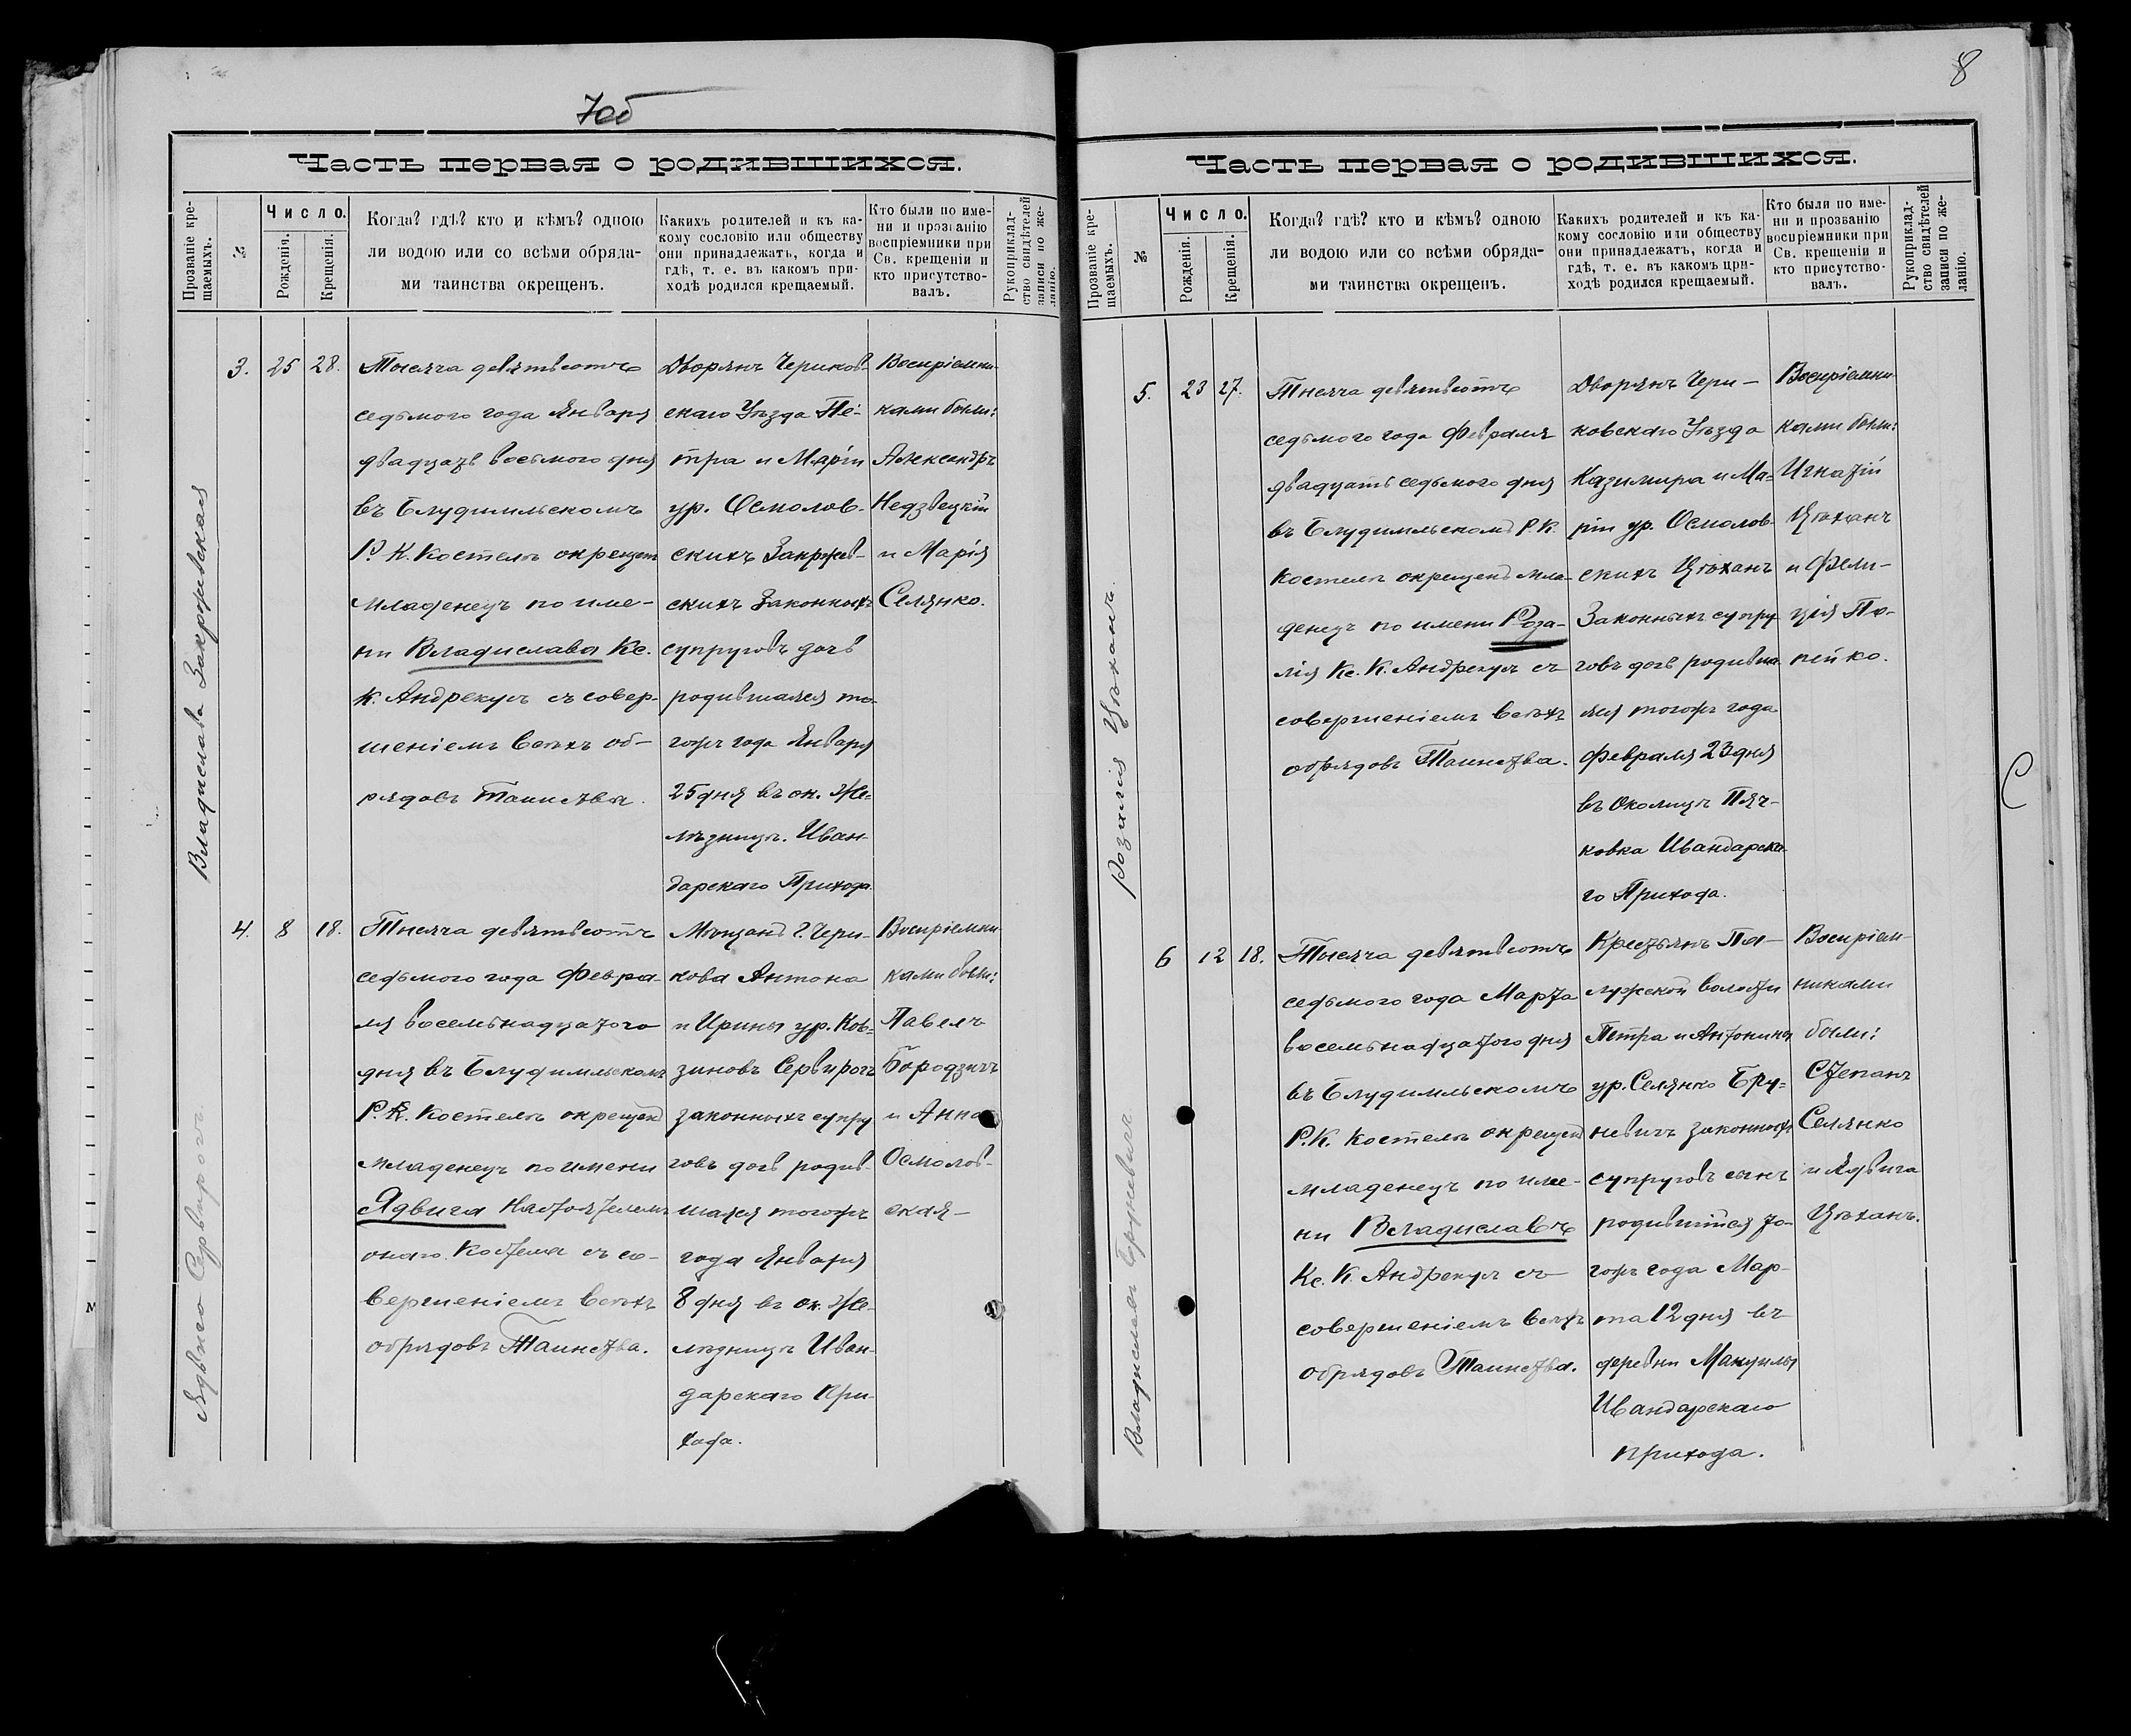 7об
Часть первая о родившихся.
Прозваніе кре-
щаемыхъ.
№
Число.
Рожденія.
Крещенія.
Когда? гдѣ? кто и кѣмъ? одною
ли водою или со всѣми обряда-
ми таинства окрещенъ.
Какихъ родителей и къ ка-
кому сословію или обществу
они принадлежатъ, когда и
гдѣ, т. е. въ какомъ при-
ходѣ родился крещаемый.
Кто были по име-
ни и прозванію
воспріемники при
Св. крещеніи и
кто присутство-
валъ.
Рукоприклад-
ство свидѣтелей
записи по же-
ланію.
Владислава Закржевская
3.
25
28.
Тысяча девятьсотъ
седьмого года Января
двадцать восьмого дня
въ Блудимльскомъ
Р. К. Костелѣ окрещенъ
младенецъ по име-
ни Владислава Кс.
К. Андрекусъ съ совер-
шеніемъ всѣхъ об-
рядовъ таинства.
Дворянъ Чериков-
скаго Уѣзда Пе-
тра и Маріи
ур. Осмолов-
скихъ Закржев-
скихъ Законныхъ
супруговъ дочь
родившаяся то-
гожъ года Января
25 дня въ ок. Же-
лѣзницѣ. Иван-
дарскаго Прихода.
Воспріемни-
ками были:
Александръ
Недзвецкій
и Марія
Селянко.
Ядвига Сервирогъ
4.
8
18.
Тысяча девятьсотъ
седьмого года Февра-
ля восемьнадцатого
дня въ Блудимльскомъ
Р. К. Костелѣ окрещенъ
младенецъ по имени
Ядвига Настоятелемъ
онаго Костела съ со-
вершеніемъ всѣхъ
обрядовъ Таинства.
Мѣщанъ г. Чери-
кова Антона
и Ирины ур. Ков-
зиновъ Сервирогъ
законныхъ супру
говъ дочь родив-
шаяся тогожъ
года Января
8 дня въ ок. Же-
лѣзницѣ Иван-
дарскаго При-
хода.
Воспріемни-
ками были:
Павелъ
Бородзичъ
и Анна
Осмолов-
ская-
8
Часть первая о родившихся.
Прозваніе кре-
щаемыхъ.
№
Число.
Рожденія.
Крещенія.
Когда? гдѣ? кто и кѣмъ? одною
ли водою или со всѣми обряда-
ми таинства окрещенъ.
Какихъ родителей и къ ка-
кому сословію или обществу
они принадлежатъ, когда и
гдѣ, т. е. въ какомъ при-
ходѣ родился крещаемый.
Кто были по име-
ни и прозванію
воспріемники при
Св. крещеніи и
кто присутство-
валъ.
Рукоприклад-
ство свидѣтелей
записи по же-
ланію.
Розалія Цѣханъ.
5.
23
27.
Тысяча девятьсотъ
седьмого года Февраля
двадцать седьмого дня
въ Блудимльскомъ Р. К.
костелѣ окрещенъ мла-
денецъ по имени Роза-
лія Кс. К. Андрекусъ съ
совершеніемъ всѣхъ
обрядовъ Таинства.
Дворянъ Чери-
ковскаго Уѣзда
Казимира и Ма-
ріи ур. Осмолов-
скихъ Цѣханъ
Законныхъ супру-
говъ дочь родивша-
яся тогожъ года
Февраля 23 дня
въ Околицѣ Пяч-
ковка Ивандарска-
го Прихода.
Воспріемни-
ками были:
Игнатій
Цѣханъ
и Фели-
ція По-
пейко.
Владиславъ Бруневичъ
6
12
18.
Тысяча девятьсотъ
седьмого года Марта
восемьнадцатого дня
въ Блудимльскомъ
Р. К. Костелѣ окрещенъ
младенецъ по име-
ни Владиславъ
Кс. К. Андрекусъ съ
совершеніемъ всѣхъ
обрядовъ Таинства.
Крестьянъ Па-
лужской волости
Петра и Антонины
ур. Селянко Бру-
невичъ законныхъ
супруговъ сынъ
родившійся то-
гожъ года Мар-
та 12 дня въ
деревни Макуилы
Ивандарскаго
прихода.
Воспріем-
никами
были:
Степанъ
Селянко
и Ядвига
Цѣханъ.